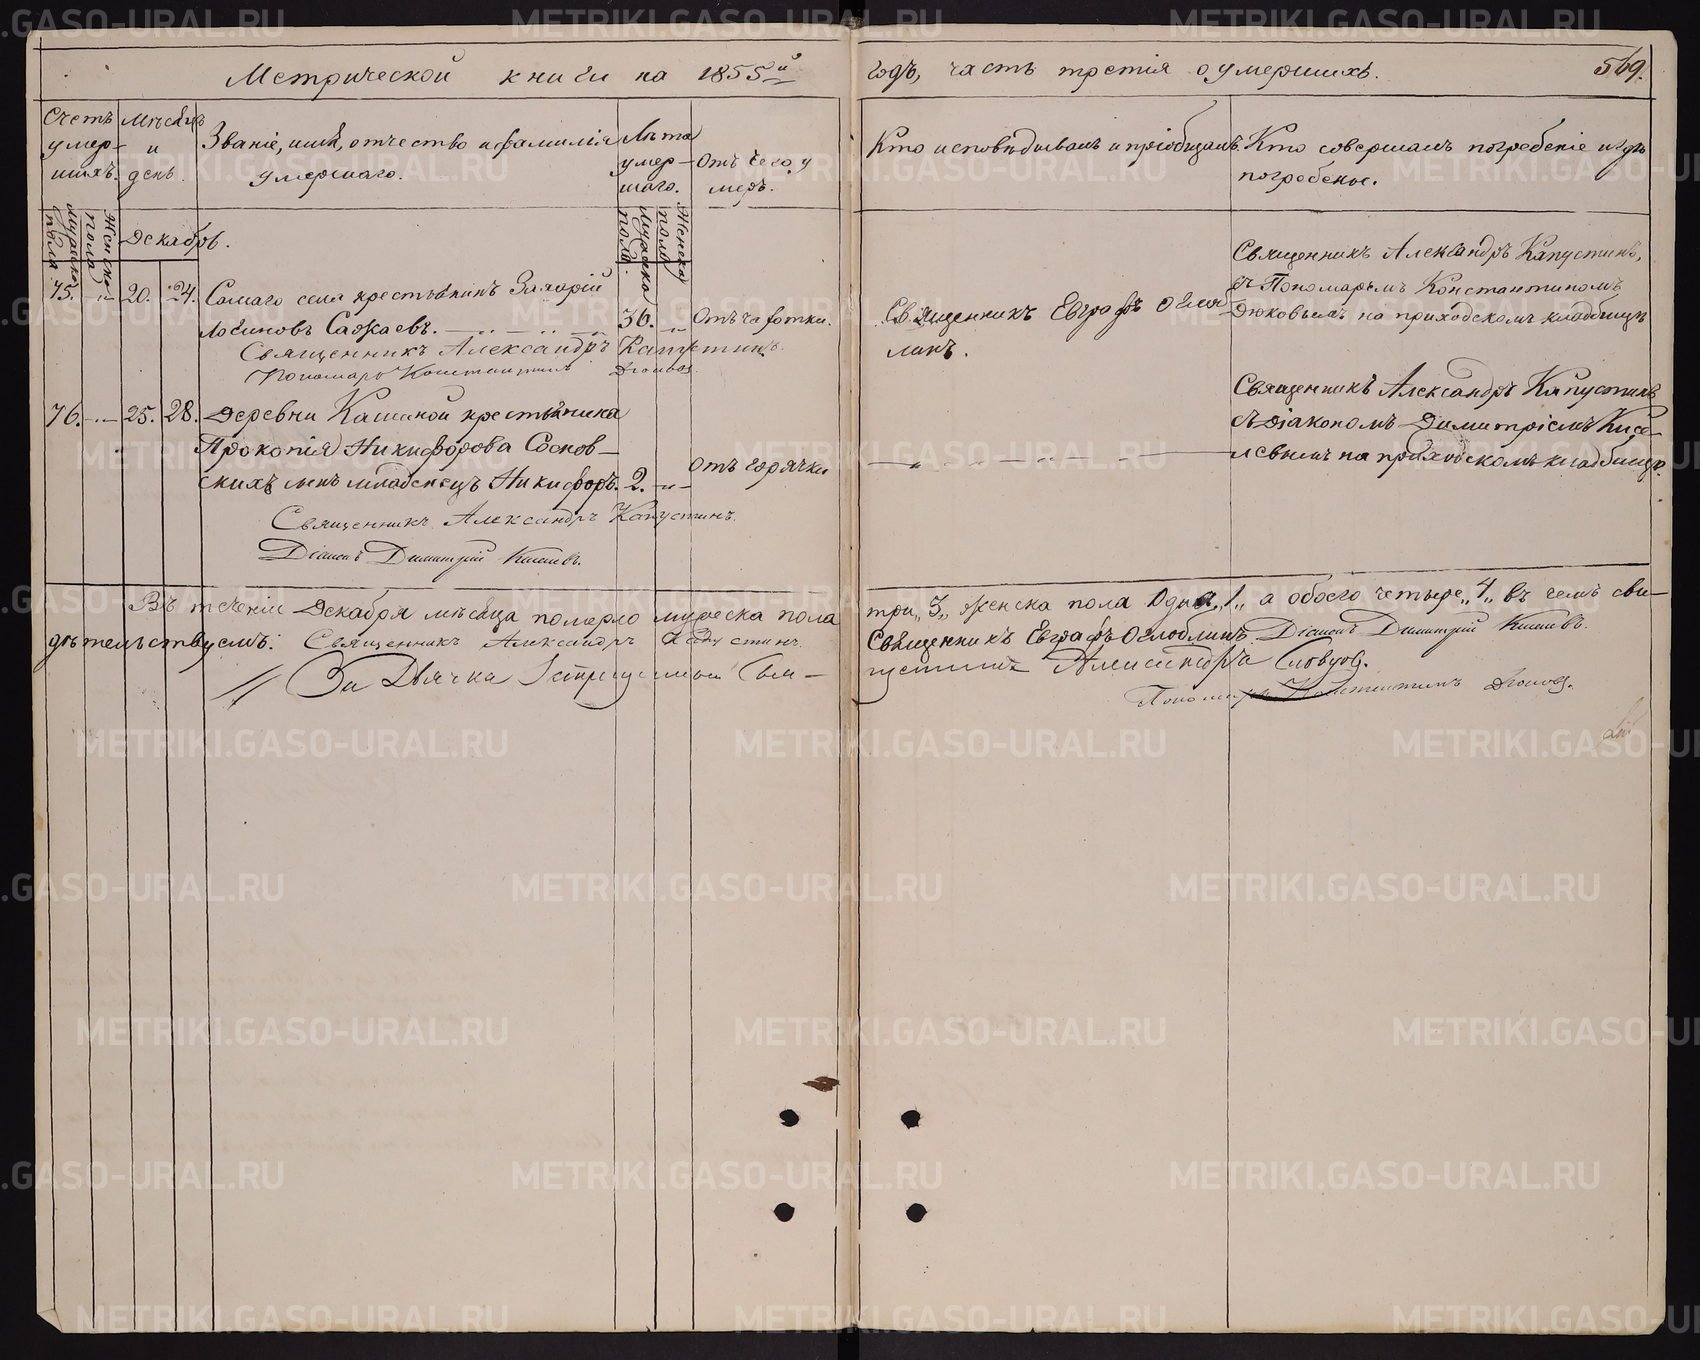 Метрической книги на 1855й
годъ, часть третія о умершихъ.
569.
Счетъ умер-шихъ.
Мѣсяцъ и день.
Званіе, имя, отчество и фамилія
умершаго.
Лѣта умер-шаго.
Отъ чего у
меръ.
Кто исповѣдывалъ и пріобщалъ.
Кто совершалъ погребеніе и гдѣ
погребены.
Мужска пола
Женска пола
Декабрь.
Мужска пола.
Женска пола
75. -„- 20. 24. Самаго села крестьянинъ Захарій
Логиновъ Сажаевъ. 36. „ Отъ чахотки.
Священникъ Александръ Капустинъ.
Пономарь Константинъ Дюковъ.
Священникъ Евграфъ Огло
линъ.
Священникъ Александръ Капустинъ,
съ Пономаремъ Константиномъ
Дюковымъ на приходскомъ кладбищѣ
76. -„- 25. 28. Деревни Кашиной крестьянина
Прокопія Никифорова Соснов-
скихъ сынъ младенецъ Никифоръ. 2. -„- отъ горячки
Священникъ Александръ Капустинъ.
Діаконъ Димитрій Киселевъ.
Священникъ Александръ Капустинъ
съ Діакономъ Димитріемъ Кисе-
левымъ на приходскомъ кладбищѣ.
Въ теченіи Декабря мѣсяца померло мужеска пола
три „3„ женска пола одна „1„ а обоего четыре „4„ въ чемъ сви-
дѣтельствуемъ: Священникъ Александръ Капустинъ.
Священникъ Евграфъ Оглоблинъ Діаконъ Димитрій Киселевъ.
За Дьячка
Александръ Словцовъ.
Пономарь Константинъ Дюковъ.
METRIKI.GASO-URAL.RU